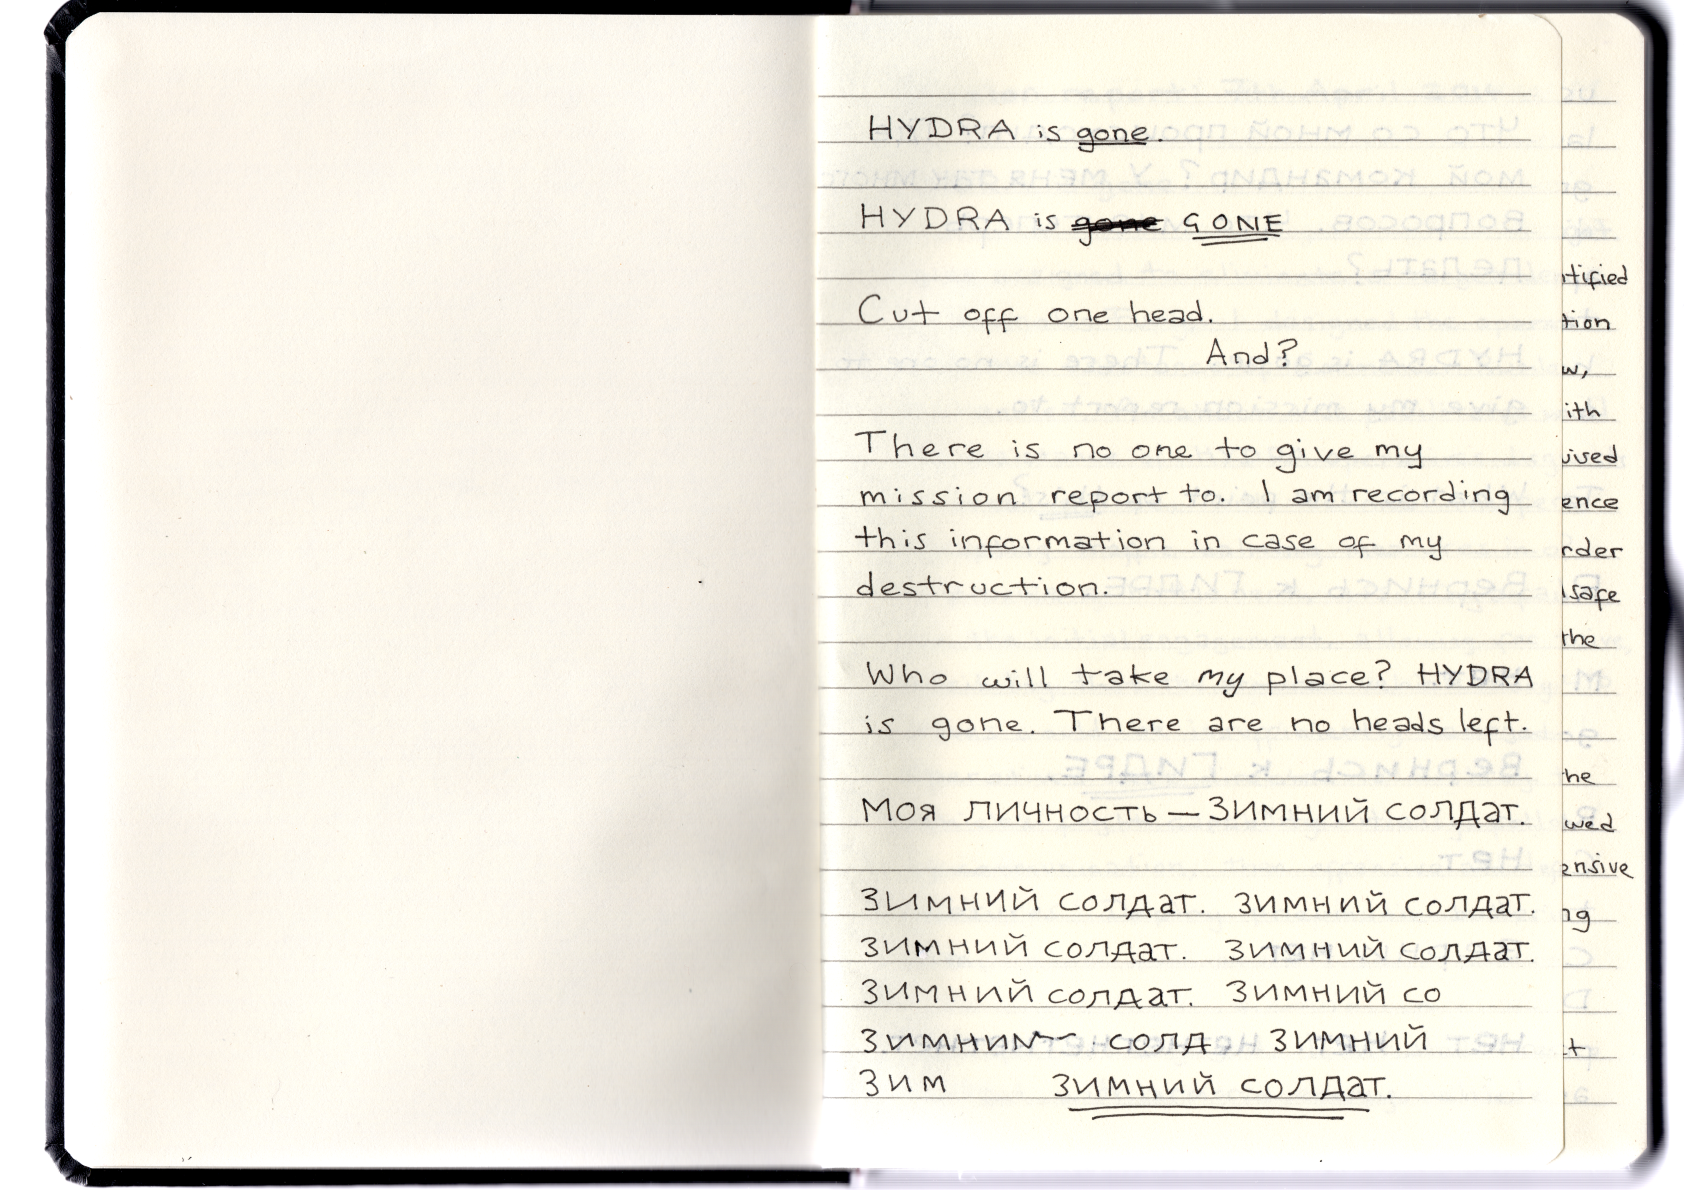 HYDRA is gone.
HYDRA is gone GONE
Cut off one head.
And?
There is no one to give my
mission report to. I am recording
this information in case of my
destruction.
Who will take my place? HYDRA
is gone. There are no heads left.
Моя личность — Зимний солдат.
Зимний солдат. Зимний солдат.
Зимний солдат. Зимний солдат.
Зимний солдат. Зимний со
Зимний солд Зимний
Зим Зимний солдат.
tified
tion
w,
ith
ence
rder
safe
the
he
wed
ensive
ng
t